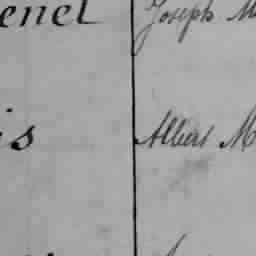 enel Joseph M
is Albert M